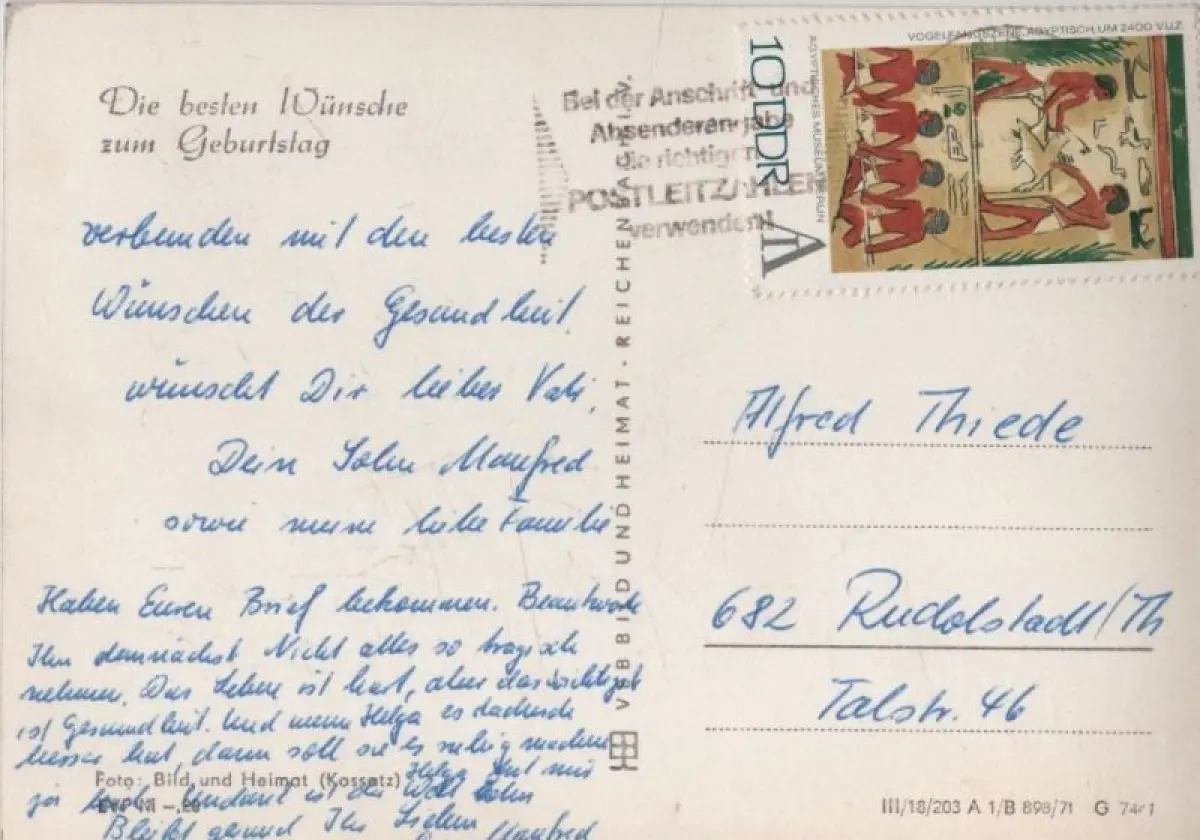 Die besten Wünsche
zum Geburtstag
verbunden mit den besten
Wünschen der Gesundheit
wünscht Dir lieber Vati,
Dein Sohn Manfred
sowie meine liebe Familie
Haben Euren Brief bekommen. Beantworte
Ihn demnächst Nicht alles so tragisch
nehmen. Das Leben ist hart, aber das wichtigste
ist Gesundheit. Und wenn Helga es dadurch
besser hat, dann soll sie es ruhig machen
Helga tut mir
ja Undank ist der Welt Lohn
Bleibt gesund Ihr Lieben
Manfred
Foto: Bild und Heimat (Kossatz)
VEB BILD UND HEIMAT · REICHENBACH I. V.
Bei der Anschrift und
Absenderangabe
die richtigen
POSTLEITZAHLEN
verwenden!
VOGELFANGSZENE, ÄGYPTISCH, UM 2400 V.U.Z.
ÄGYPTISCHES MUSEUM BERLIN
10 DDR
Alfred Thiede
682 Rudolstadt/Th
Talstr. 46
III/18/203 A 1/B 898/71 G 7461